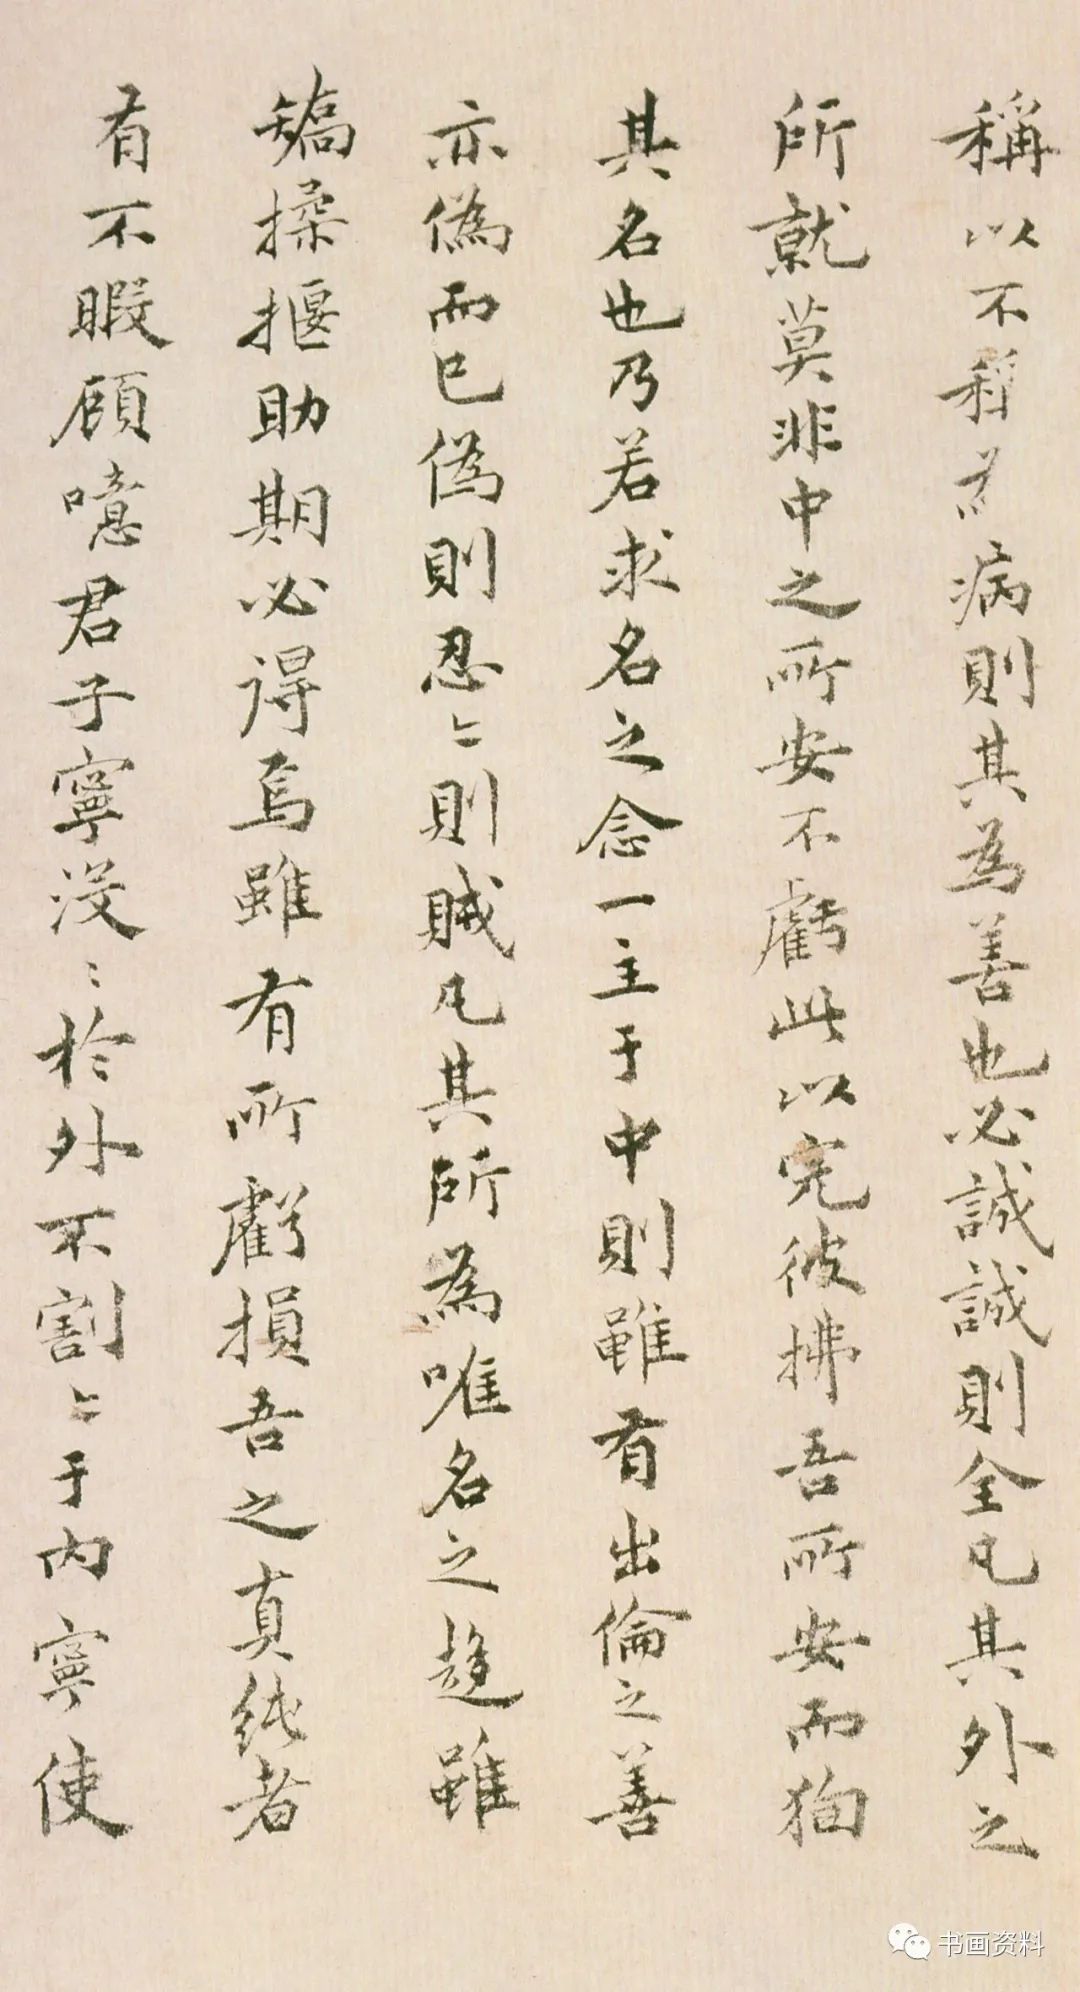 稱以不稱為病則其為善也必誠誠則全凡其外之
所就莫非中之所安不虧此以完彼拂吾所安而狥
其名也乃若求名之念一主于中則雖有出倫之善
亦偽而已偽則忍〻則賊凡其所為唯名之趨雖
矯揉揠助期必得焉雖有所虧損吾之真純者
有不暇顧噫君子寧沒〻於外不割〻于内寧使
书画资料